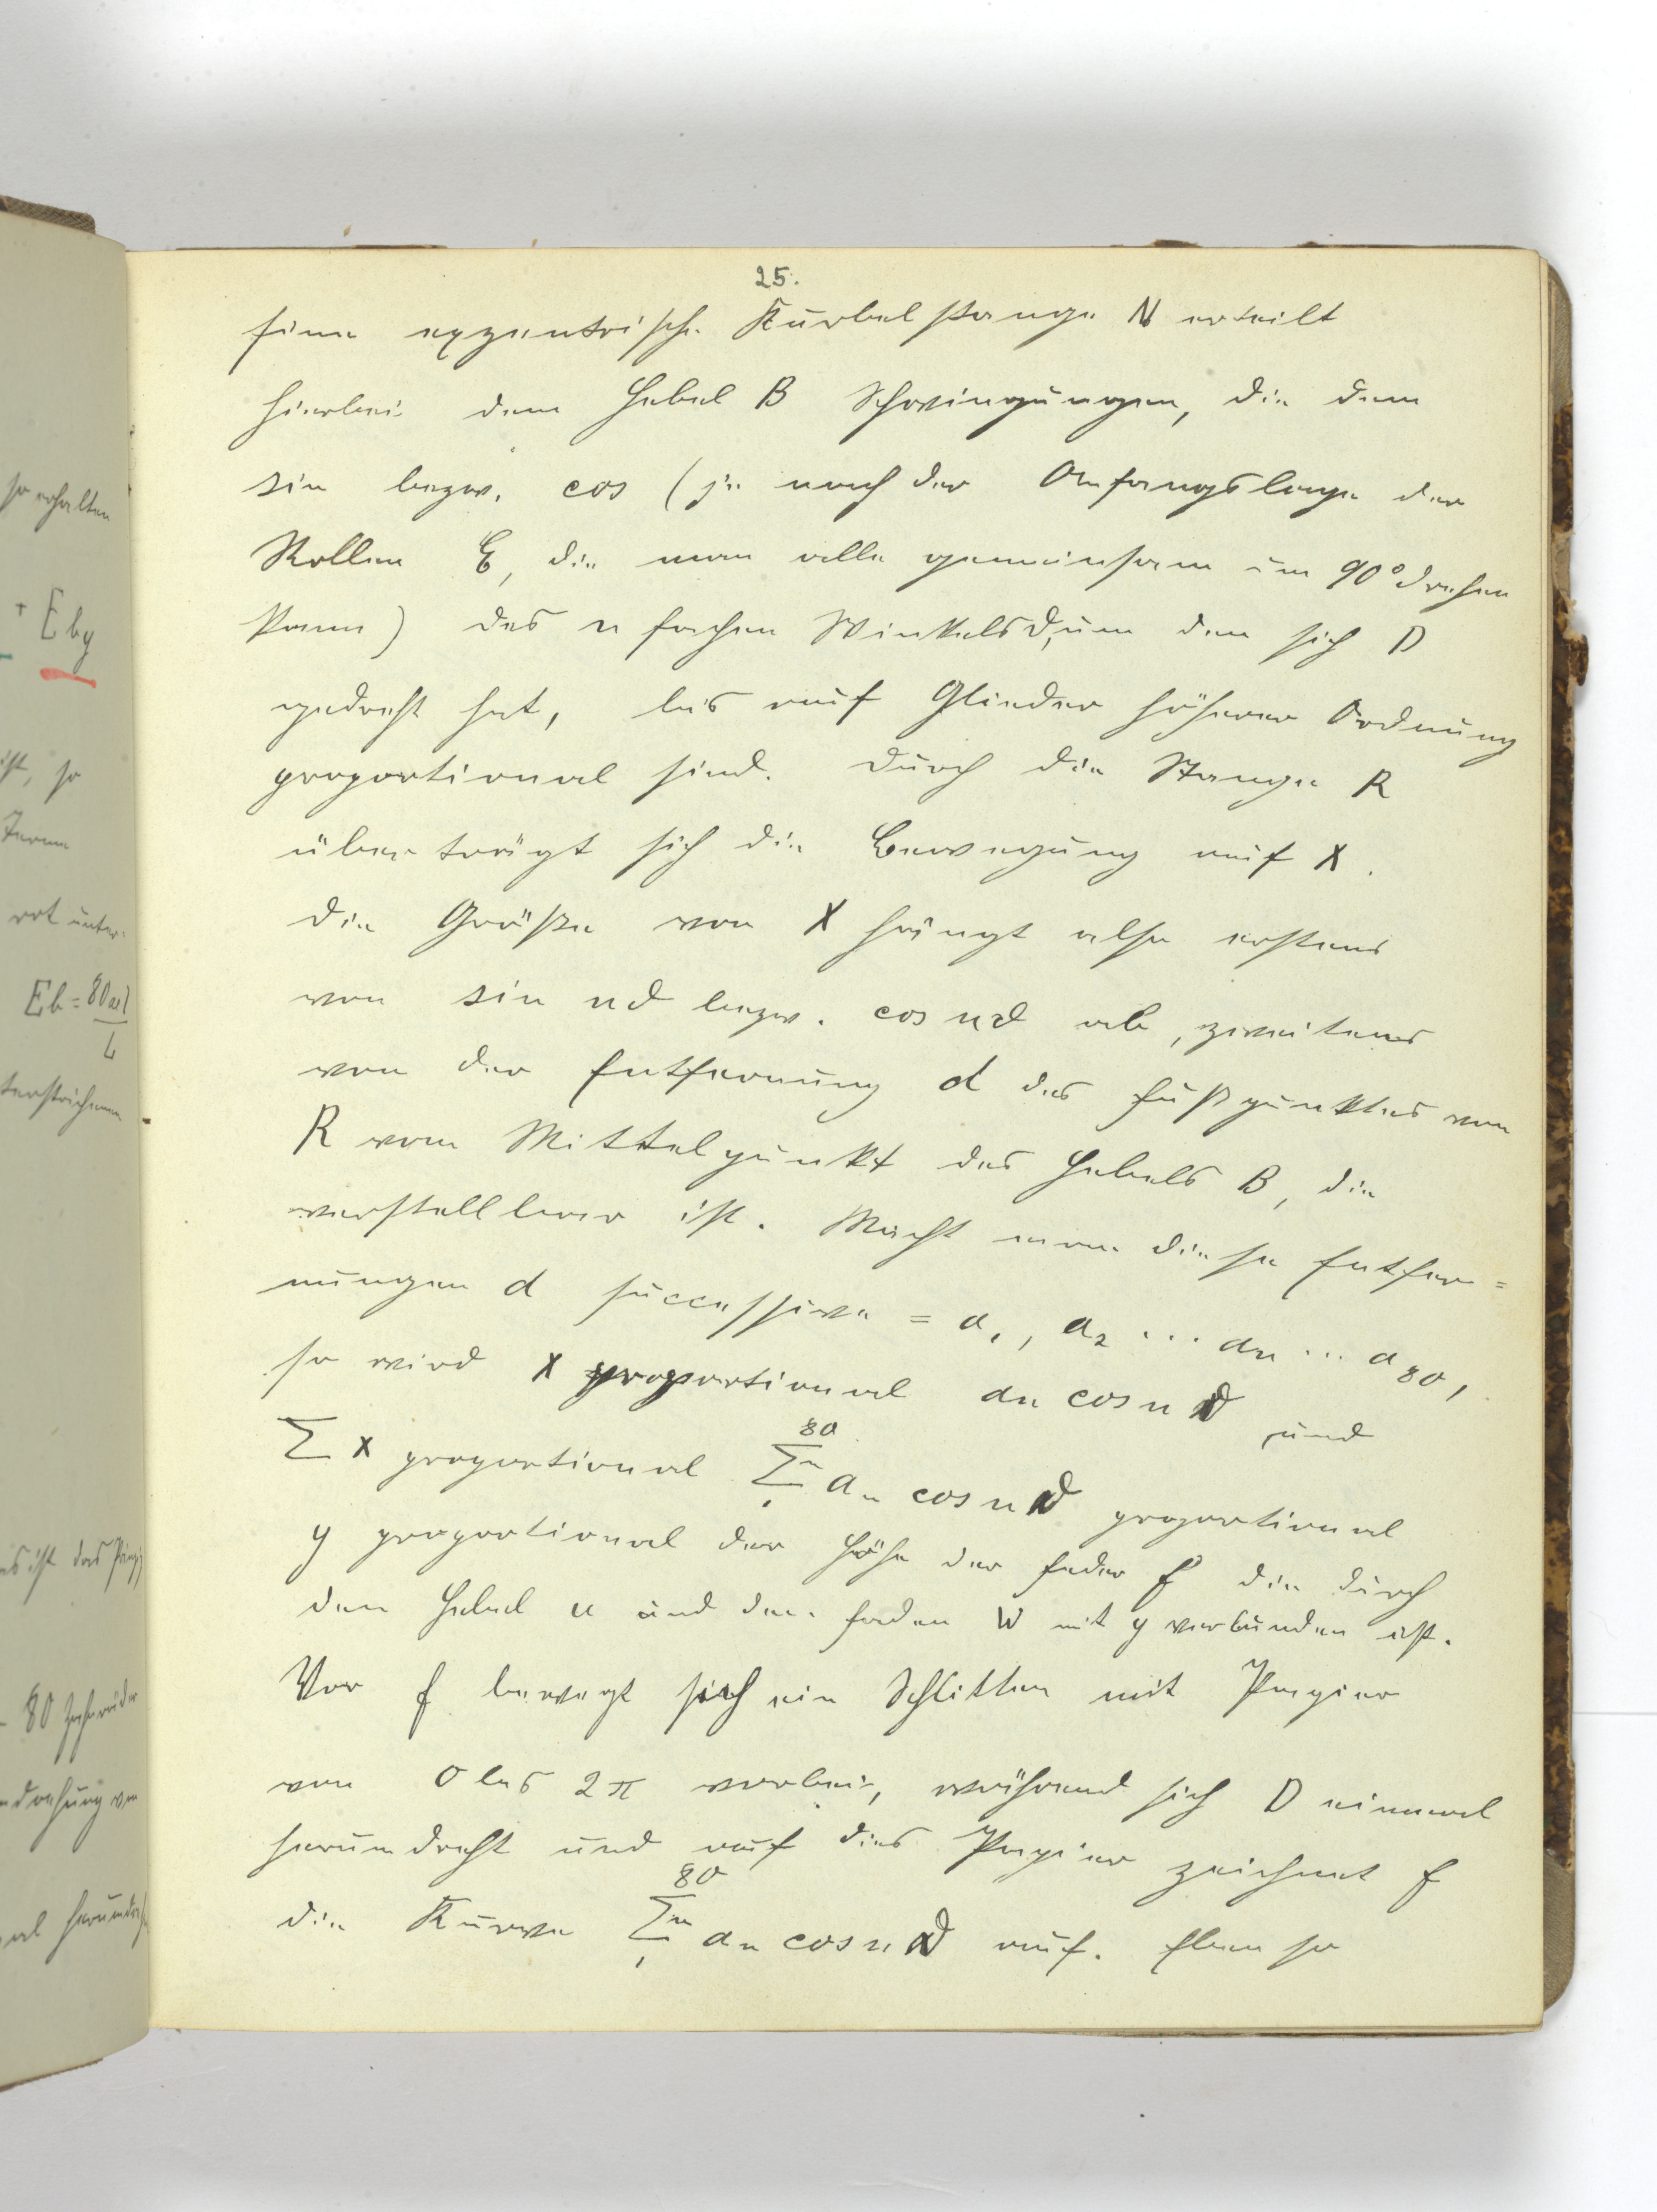 25.
Eine exzentrische Kurbelstange N erteilt
hierbei dem Hebel B Schwingungen, die dem
sin bezw. cos (je nach der Anfangslage der
Rollen E, die man alle gemeinsam um 90° drehen
kann) des n fachen Winkels ϑ, um den sich D
gedreht hat, bis auf Glieder höherer Ordnung
proportional sind. Durch die Stange R
überträgt sich die Bewegung auf X.
Die Größe von X hängt also erstens
von sin nϑ bezw. cos nϑ ab, zweitens
von der Entfernung d des Fußpunktes von
R vom Mittelpunkt des Hebels B, die
verstellbar ist. Macht man diese Entfer=
nungen d successive = a₁, a₂ ... an ... a80,
so wird X proportional an cos nϑ und
∑ X proportional ∑ⁿ₁⁸⁰ an cos nϑ proportional
y proportional der Höhe der Feder F die durch
den Hebel u und den Faden W mit y verbunden ist.
Vor F bewegt sich ein Schlitten mit Papier
von 0 bis 2π vorbei, während sich D einmal
herumdreht und auf dies Papier zeichnet F
die Kurve ∑ⁿ₁⁸⁰ an cos nϑ auf. Ebenso
so erhalten
+ Eby
ist, so
rot unter=
Eb = 80al
L
terstrichenen
es ist das Prinzip
80 Zahnräder
ndrehung von
al herumdreh